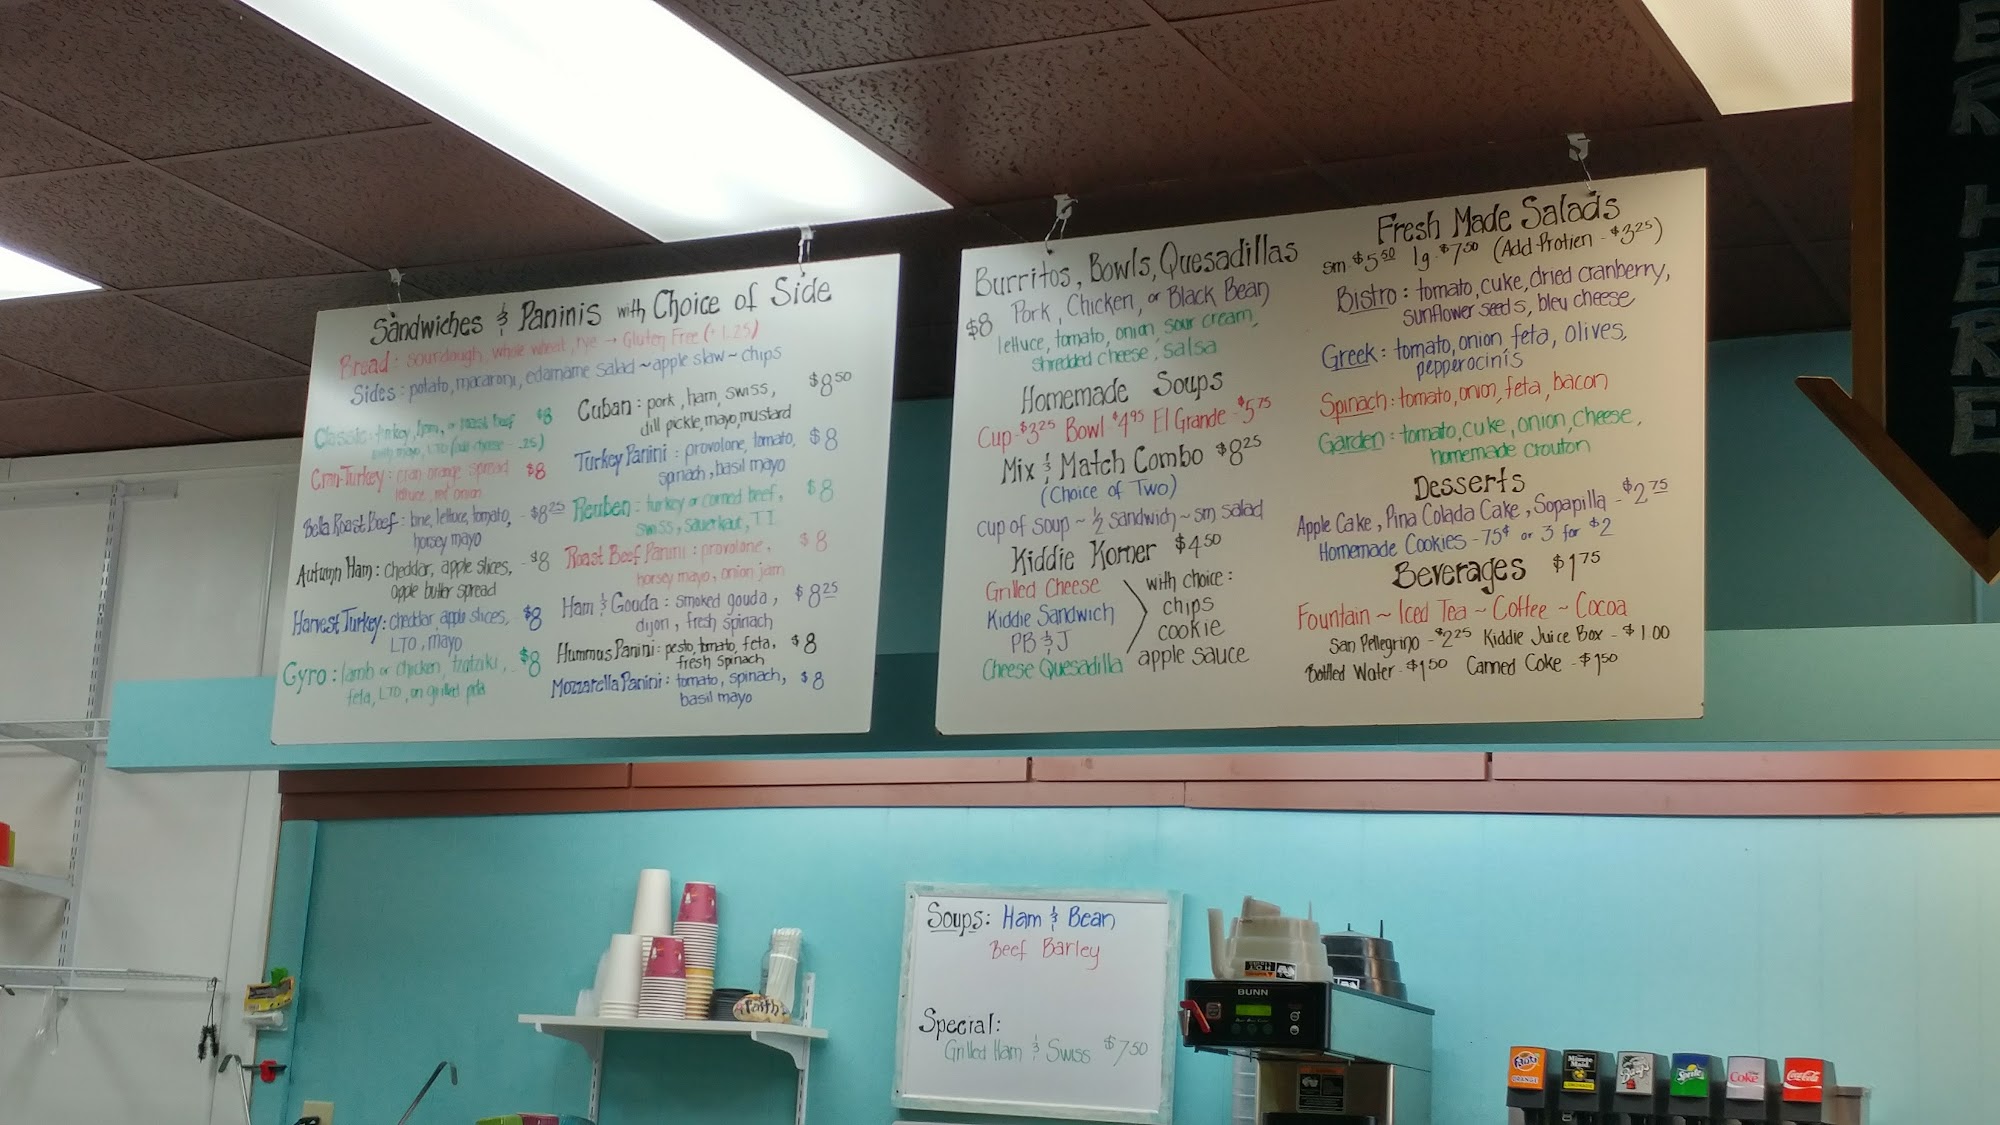 Sandwiches & Paninis with Choice of Side
Bread: sourdough, whole wheat, rye → Gluten Free (+1.25)
Sides: potato, macaroni, edamame salad ~ apple slaw ~ chips
Classic: turkey, ham, or roast beef $8
with mayo, LTO (add cheese - .25)
Cran-Turkey: cran-orange spread $8
lettuce, red onion
Bella Roast Beef: brie, lettuce, tomato, - $8.25
horsey mayo
Autumn Ham: cheddar, apple slices, - $8
apple butter spread
Harvest Turkey: cheddar, apple slices, $8
LTO, mayo
Gyro: lamb or chicken, tzatziki, - $8
feta, LTO, on grilled pita
Cuban: pork, ham, swiss, $8.50
dill pickle, mayo, mustard
Turkey Panini: provolone, tomato, $8
spinach, basil mayo
Reuben: turkey or corned beef, $8
swiss, sauerkraut, T.I.
Roast Beef Panini: provolone, $8
horsey mayo, onion jam
Ham & Gouda: smoked gouda, $8.25
dijon, fresh spinach
Hummus Panini: pesto, tomato, feta, $8
fresh spinach
Mozzarella Panini: tomato, spinach, $8
basil mayo
Burritos, Bowls, Quesadillas
$8 Pork, Chicken, or Black Bean
lettuce, tomato, onion, sour cream,
shredded cheese, salsa
Homemade Soups
Cup - $3.25 Bowl - $4.95 El Grande - $5.75
Mix & Match Combo $8.25
(Choice of Two)
cup of soup ~ 1/2 sandwich ~ sm salad
Kiddie Korner $4.50
Grilled Cheese
Kiddie Sandwich
PB & J
Cheese Quesadilla
with choice:
chips
cookie
apple sauce
Fresh Made Salads
sm - $5.50 lg - $7.50 (Add Protien - $3.25)
Bistro: tomato, cuke, dried cranberry,
sunflower seeds, bleu cheese
Greek: tomato, onion, feta, olives,
pepperocinis
Spinach: tomato, onion, feta, bacon
Garden: tomato, cuke, onion, cheese,
homemade crouton
Desserts
Apple Cake, Pina Colada Cake, Sopapilla - $2.75
Homemade Cookies - 75¢ or 3 for $2
Beverages $1.75
Fountain ~ Iced Tea ~ Coffee ~ Cocoa
San Pellegrino - $2.25 Kiddie Juice Box - $1.00
Bottled Water - $1.50 Canned Coke - $1.50
ER HERE
Soups: Ham & Bean
Beef Barley
Special:
Grilled Ham & Swiss $7.50
Faith
BUNN
Fanta
ORANGE
Minute Maid
Barq's
Sprite
Coke
Coca-Cola